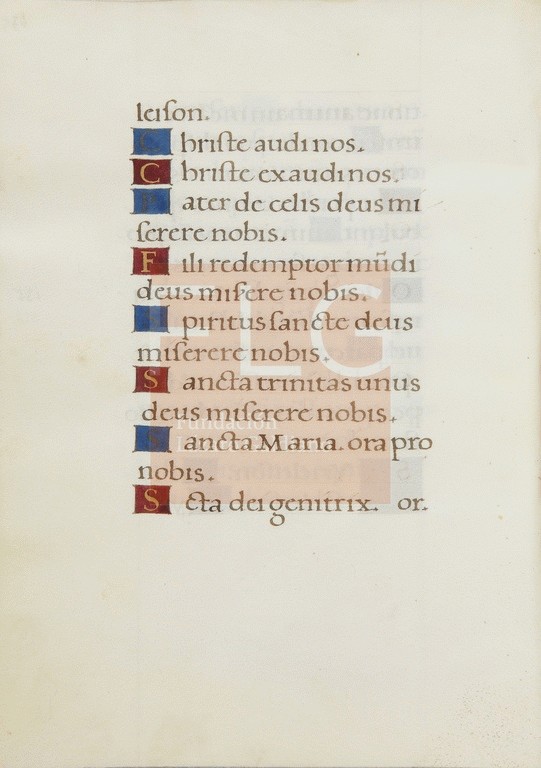 leison.
Christe audi nos.
Christe exaudi nos.
Pater de celis deus mi
serere nobis.
Fili redemptor mũdi
deus misere nobis.
Spiritus sancte deus
miserere nobis.
Sancta trinitas unus
deus miserere nobis.
Sancta Maria. ora pro
nobis.
Scta dei genitrix. or.
FLG
Fundación